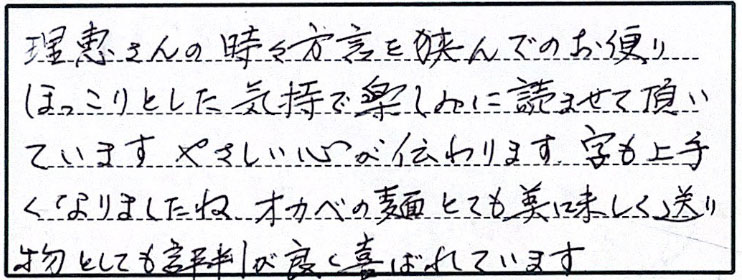 理恵さんの時々方言を狭んでのお便り
ほっこりとした気持で楽しみに読ませて頂い
ています やさしい心が伝わります 字も上手
くなりましたね オカベの麺とても美味しく送り
物としても評判が良く喜ばれています